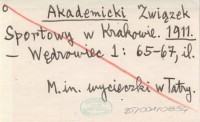 Akademicki Związek
Sportowy w Krakowie. 1911.
— Wędrowiec 1: 65-67, il.
M.in. wycieczki w Tatry.